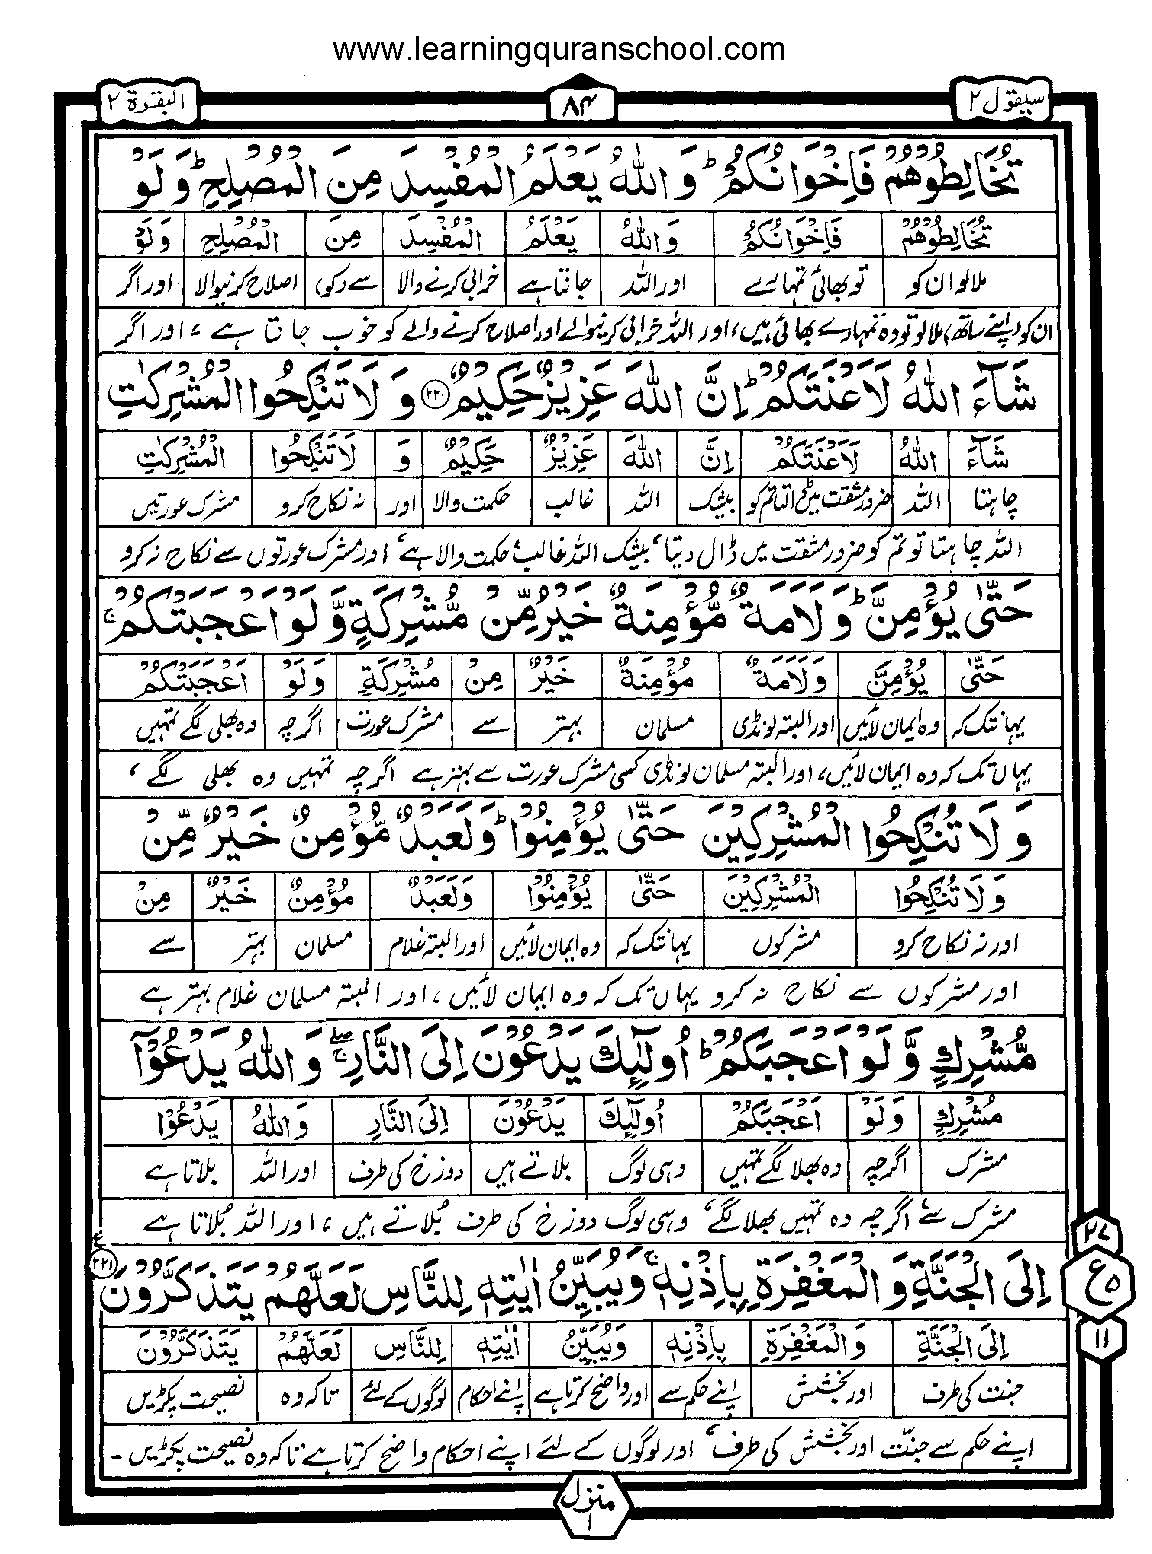 www.learningquranschool.com
سیقول ۲
۸۴
البقرة ۲
تُخَالِطُوْهُمْ فَاِخْوَانُكُمْ ؕ وَ اللّٰهُ يَعْلَمُ الْمُفْسِدَ مِنَ الْمُصْلِحِ ؕ وَ لَوْ
تُخَالِطُوْهُمْ فَاِخْوَانُكُمْ وَاللّٰهُ يَعْلَمُ الْمُفْسِدَ مِنَ الْمُصْلِحِ وَلَوْ
ملالو ان کو تو بھائی تمہارے اور اللہ جانتا ہے خرابی کرنے والا سے (کو) اصلاح کرنیوالا اور اگر
ان کو (اپنے ساتھ) ملالو تو وہ تمہارے بھائی ہیں، اور اللہ خرابی کرنیوالے اور اصلاح کرنے والے کو خوب جانتا ہے، اور اگر
شَآءَ اللّٰهُ لَاَعْنَتَكُمْ ؕ اِنَّ اللّٰهَ عَزِيْزٌ حَكِيْمٌ ۲۲۰ وَ لَا تَنْكِحُوا الْمُشْرِكٰتِ
شَآءَ اللّٰهُ لَاَعْنَتَكُمْ اِنَّ اللّٰهَ عَزِيْزٌ حَكِيْمٌ وَ لَا تَنْكِحُوا الْمُشْرِكٰتِ
چاہتا اللہ ضرور مشقت میں ڈالتا تم کو بیشک اللہ غالب حکمت والا اور نہ نکاح کرو مشرک عورتیں
اللہ چاہتا تو تم کو ضرور مشقت میں ڈال دیتا، بیشک اللہ غالب، حکمت والا ہے، اور مشرک عورتوں سے نکاح نہ کرو
حَتّٰى يُؤْمِنَّ ؕ وَ لَاَمَةٌ مُّؤْمِنَةٌ خَيْرٌ مِّنْ مُّشْرِكَةٍ وَّ لَوْ اَعْجَبَتْكُمْ ۚ
حَتّٰى يُؤْمِنَّ وَلَاَمَةٌ مُؤْمِنَةٌ خَيْرٌ مِنْ مُشْرِكَةٍ وَلَوْ اَعْجَبَتْكُمْ
یہانتک کہ وہ ایمان لائیں اور البتہ لونڈی مسلمان بہتر سے مشرک عورت اگرچہ وہ بھلی لگے تمہیں
یہاں تک کہ وہ ایمان لائیں، اور البتہ مسلمان لونڈی کسی مشرک عورت سے بہتر ہے اگرچہ تمہیں وہ بھلی لگے،
وَ لَا تُنْكِحُوا الْمُشْرِكِيْنَ حَتّٰى يُؤْمِنُوْا ؕ وَ لَعَبْدٌ مُّؤْمِنٌ خَيْرٌ مِّنْ
وَ لَا تُنْكِحُوا الْمُشْرِكِيْنَ حَتّٰى يُؤْمِنُوْا وَلَعَبْدٌ مُؤْمِنٌ خَيْرٌ مِنْ
اور نہ نکاح کرو مشرکوں یہانتک کہ وہ ایمان لائیں اور البتہ غلام مسلمان بہتر سے
اور مشرکوں سے نکاح نہ کرو یہاں تک کہ وہ ایمان لائیں، اور البتہ مسلمان غلام بہتر ہے
مُّشْرِكٍ وَّ لَوْ اَعْجَبَكُمْ ؕ اُولٰٓئِكَ يَدْعُوْنَ اِلَى النَّارِ ۖۚ وَ اللّٰهُ يَدْعُوْۤا
مُشْرِكٍ وَلَوْ اَعْجَبَكُمْ اُولٰٓئِكَ يَدْعُوْنَ اِلَى النَّارِ وَاللّٰهُ يَدْعُوْا
مشرک اگرچہ وہ بھلا لگے تمہیں وہی لوگ بلاتے ہیں دوزخ کی طرف اور اللہ بلاتا ہے
مشرک سے اگرچہ وہ تمہیں بھلا لگے، وہی لوگ دوزخ کی طرف بُلاتے ہیں، اور اللہ بُلاتا ہے
اِلَى الْجَنَّةِ وَ الْمَغْفِرَةِ بِاِذْنِهٖ ۚ وَ يُبَيِّنُ اٰيٰتِهٖ لِلنَّاسِ لَعَلَّهُمْ يَتَذَكَّرُوْنَ ۲۲۱ ع
۲۷
ع ۵
۱۱
اِلَى الْجَنَّةِ وَ الْمَغْفِرَةِ بِاِذْنِهٖ وَ يُبَيِّنُ اٰيٰتِهٖ لِلنَّاسِ لَعَلَّهُمْ يَتَذَكَّرُوْنَ
جنت کی طرف اور بخشش اپنے حکم سے اور واضح کرتا ہے اپنے احکام لوگوں کے لئے تاکہ وہ نصیحت پکڑیں
اپنے حکم سے جنّت اور بخشش کی طرف، اور لوگوں کے لئے اپنے احکام واضح کرتا ہے تاکہ وہ نصیحت پکڑیں -
منزل ۱